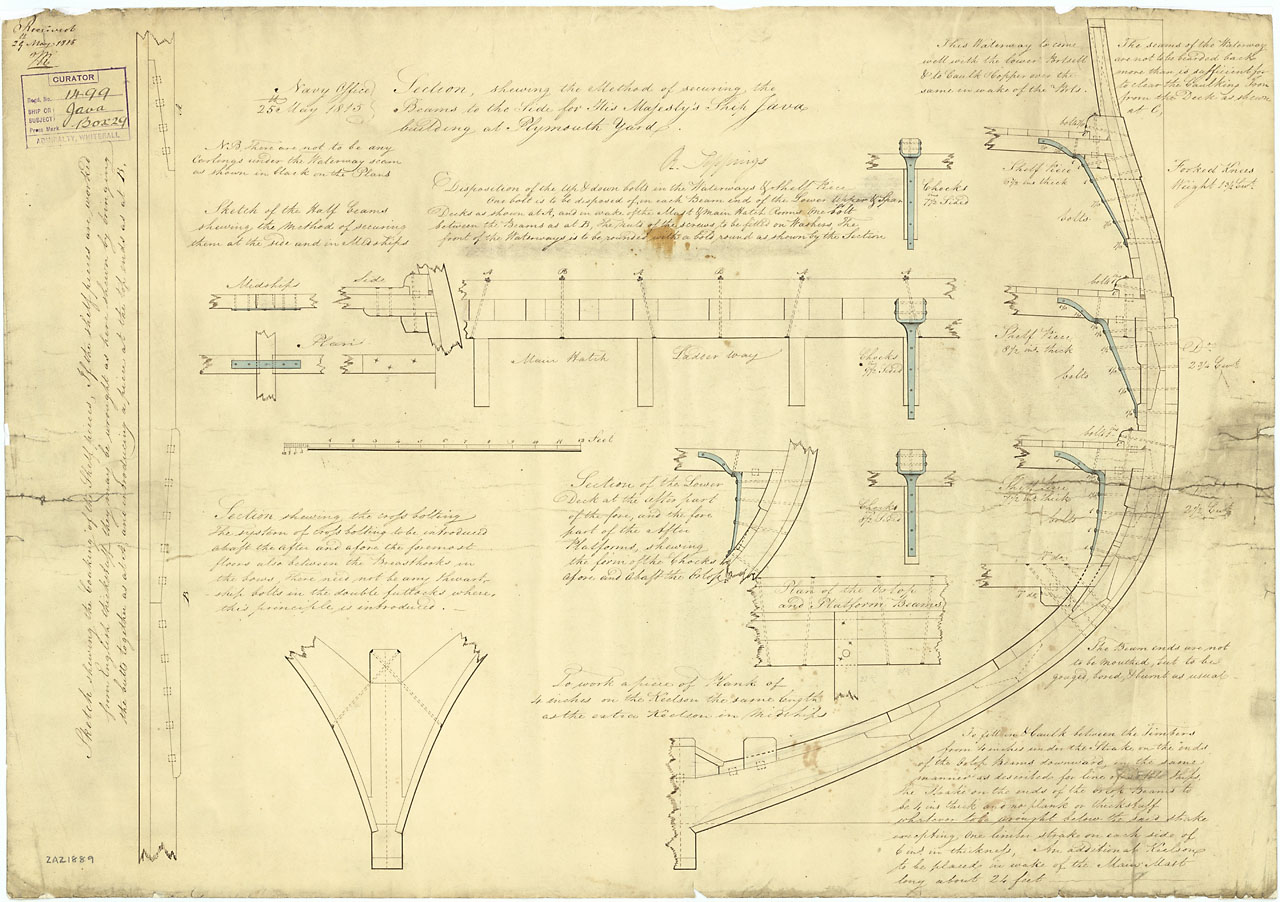 Received
29 May 1815
CURATOR
Regd. No. 1499
SHIP OR SUBJECT: Java
Press Mark Box 29
ADMIRALTY, WHITEHALL
Navy Office
25th May 1815
Section, shewing the Method of securing the
Beams to the Side for His Majesty's Ship Java
building at Plymouth Yard.
R. Seppings
NB There are not to be any
Carlings under the Waterway seam
as shown in black on the Plans
Sketch of the Half Beams
shewing the Method of securing
them at the side and in Midships
Disposition of the Up & down bolts in the Waterways & Shelf Piece
One bolt is to be disposed of in each Beam end of the Lower Upper & Spar
Decks as shown at A, and in wake of the Mast & Main Hatch Rooms, one bolt
between the Beams as at B, The Nuts of the screws to be fitted on Washers, The
front of the Waterways is to be rounded with a bolt round as shown by the Section
This Waterway to come
well with the Lower Portsell
& to Caulk Copper over the
same in wake of the Ports.
The seams of the Waterway
are not to be bearded back
more than is sufficient for
to clear the Caulking Iron
from the Deck as shown
at C,
Forked Knees
Chocks
7½ Sided
bolts
Shelf Piece
bolts
Midships
Side
Plan
A
B
A
B
A
Main Hatch
Ladder way
Chocks
Sided
bolts
Shelf Piece
8½ ins thick
bolts
Do
2¾ Cwt
Feet
Section of the Lower
Deck at the after part
of the fore, and the fore
part of the After
Platforms, shewing
the form of the Chocks
afore and abaft the Orlop
Chocks
Sided
bolts
Shelf Piece
7½ ins thick
bolts
2½ Cwt
Section shewing the cross bolting
The system of cross bolting to be introduced
abaft the after and afore the foremost
floors also between the Breasthooks in
the bows, there need not be any thwart-
ship bolts in the double futtocks where
this principle is introduced. —
Plan of the Orlop
and Platform Beams
To work a piece of Plank of
4 inches on the Keelson the same length
as the extra Keelson in Midships
The Beam ends are not
to be mouthed, but to be
gouged, bored, & burnt as usual
To fill in & Caulk between the Timbers
from 4 inches under the Strake on the ends
of the Orlop Beams downward, in the same
manner as described for line of battle Ships,
the Strake on the ends of the Orlop Beams to
be 4 ins thick and no plank or thickstuff
whatever to be brought below the said strake
excepting One limber strake on each side of
6 ins in thickness, An additional Keelson
to be placed in wake of the Main Mast
long about 24 feet
Sketch shewing the Coaking of the Shelf pieces, If the shelf pieces are worked
from English thickstuff they may be wrought as here shewn by bringing
the butts together as at S, and introducing a piece at the top ends as at D.
ZAZ1889